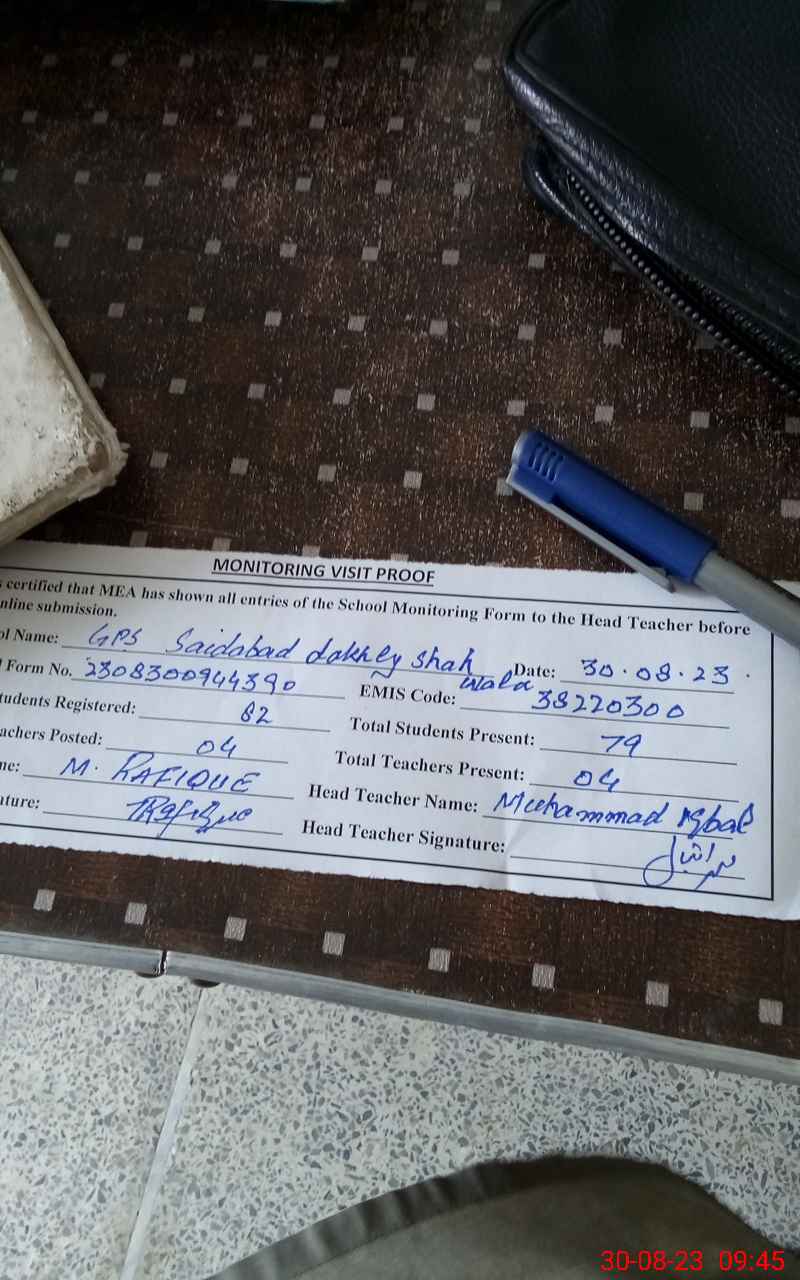 MONITORING VISIT PROOF
s certified that MEA has shown all entries of the School Monitoring Form to the Head Teacher before
nline submission.
ol Name: GPS Saidabad dakhly shah wala Date: 30.08.23.
l Form No. 2308300944390 EMIS Code: 38220300
tudents Registered: 82 Total Students Present: 79
achers Posted: 04 Total Teachers Present: 04
me: M. RAFIQUE Head Teacher Name: Muhammad Iqbal
ature: Head Teacher Signature:
30-08-23 09:45